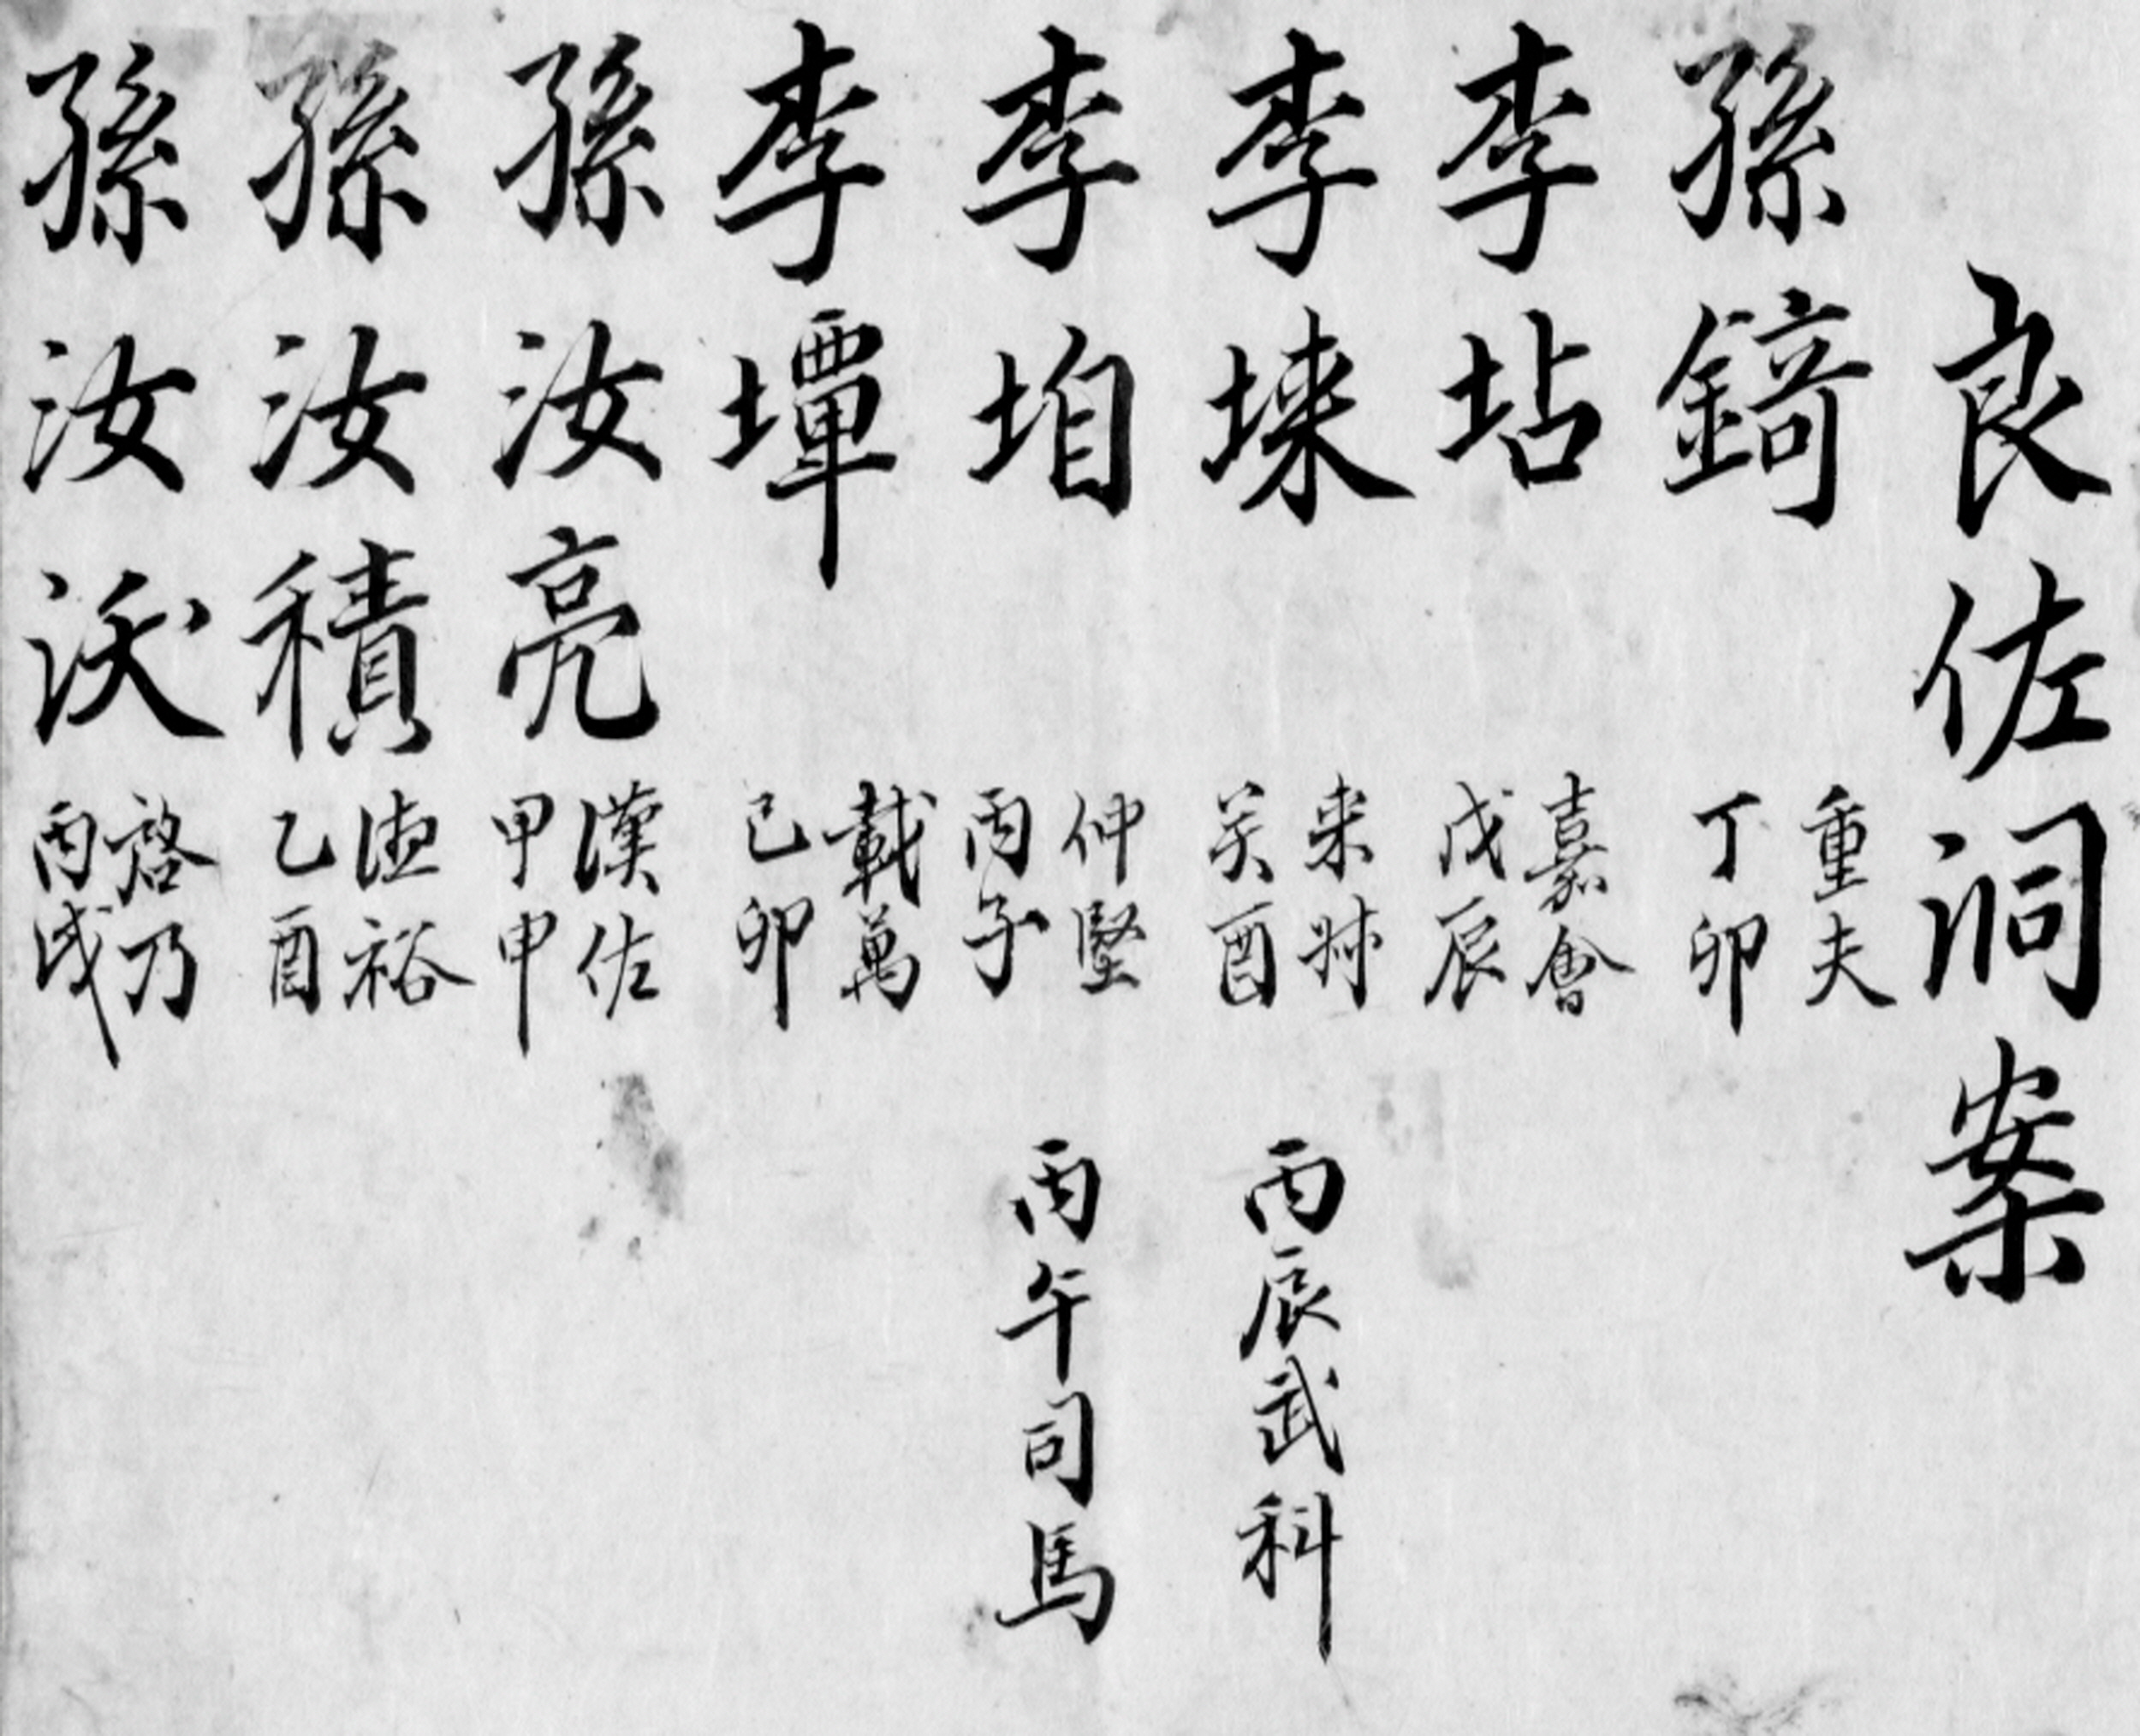 良佐洞案
孫錡 重夫 丁卯
李坫 嘉會 戊辰
李埬 來叔 癸酉 丙辰武科
李垍 仲堅 丙子 丙午司馬
李墰 載萬 己卯
孫汝亮 漢佐 甲申
孫汝積 德裕 乙酉
孫汝沃 啓乃 丙戌